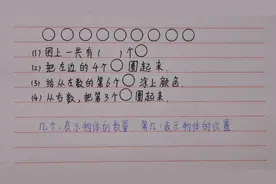 (1) 图上一共有( )个○
(2) 把左边的4个○圈起来.
(3) 给从左数的第6个○涂上颜色.
(4) 从右数,把第3个○圈起来.
几个:表示物体的数量. 第几:表示物体的位置